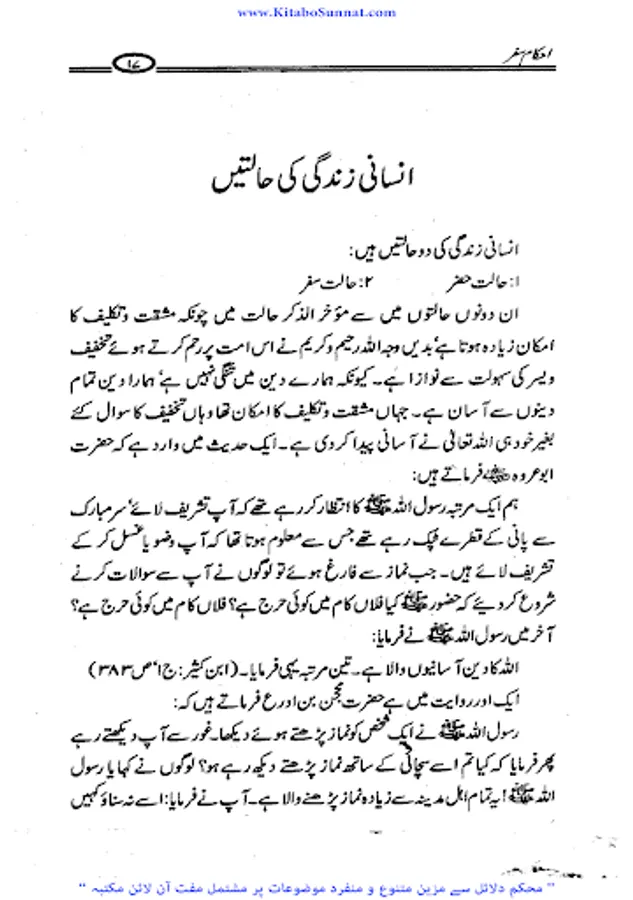 www.KitaboSunnat.com
احکام سفر
۱۷
انسانی زندگی کی حالتیں
انسانی زندگی کی دو حالتیں ہیں:
۱: حالت حضر ۲: حالت سفر
ان دونوں حالتوں میں سے مؤخر الذکر حالت میں چونکہ مشقت وتکلیف کا
امکان زیادہ ہوتا ہے' بدیں وجہ اللہ رحیم وکریم نے اس امت پر رحم کرتے ہوئے تخفیف
ویسر کی سہولت سے نوازا ہے۔ کیونکہ ہمارے دین میں تنگی نہیں ہے' ہمارا دین تمام
دینوں سے آسان ہے۔ جہاں مشقت وتکلیف کا امکان تھا وہاں تخفیف کا سوال کئے
بغیر خود ہی اللہ تعالیٰ نے آسانی پیدا کر دی ہے۔ ایک حدیث میں وارد ہے کہ حضرت
ابو عروہ رضی اللہ عنہ فرماتے ہیں:
ہم ایک مرتبہ رسول اللہ ﷺ کا انتظار کر رہے تھے کہ آپ تشریف لائے' سر مبارک
سے پانی کے قطرے ٹپک رہے تھے جس سے معلوم ہوتا تھا کہ آپ وضو یا غسل کر کے
تشریف لائے ہیں۔ جب نماز سے فارغ ہوئے تو لوگوں نے آپ سے سوالات کرنے
شروع کر دیئے کہ حضور ﷺ کیا فلاں کام میں کوئی حرج ہے؟ فلاں کام میں کوئی حرج ہے؟
آخر میں رسول اللہ ﷺ نے فرمایا:
اللہ کا دین آسانیوں والا ہے۔ تین مرتبہ یہی فرمایا۔ (ابن کثیر: ج۱' ص ۳۸۳)
ایک اور روایت میں ہے حضرت محجن بن ادرع فرماتے ہیں کہ:
رسول اللہ ﷺ نے ایک شخص کو نماز پڑھتے ہوئے دیکھا۔ غور سے آپ دیکھتے رہے
پھر فرمایا کہ کیا تم اسے سچائی کے ساتھ نماز پڑھتے دیکھ رہے ہو؟ لوگوں نے کہا یا رسول
اللہ ﷺ! یہ تمام اہل مدینہ سے زیادہ نماز پڑھنے والا ہے۔ آپ نے فرمایا: اسے نہ سناؤ کہیں
" محکم دلائل سے مزین متنوع و منفرد موضوعات پر مشتمل مفت آن لائن مکتبہ "